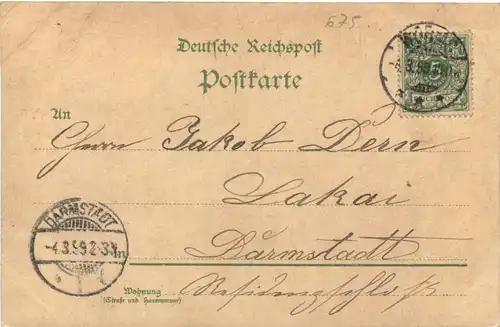 675.
Deutsche Reichspost
Postkarte
WORMS
-4.3.99
5
An
Herrn Jakob Dern
Lakai
Darmstadt
in
DARMSTADT
-4.3.99.2-3N
Wohnung
(Straße und Hausnummer)
Residenzschloß.